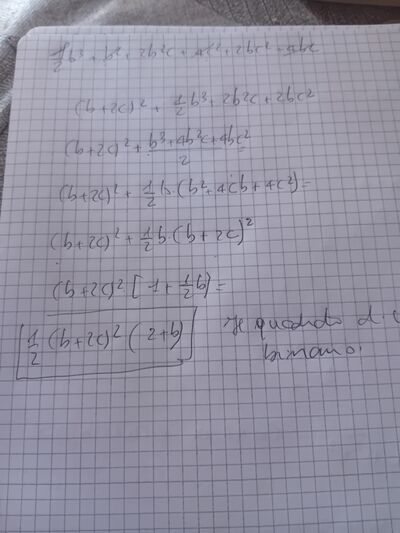 ½b³ + b² + 2b²c + 4c² + 2bc² + 4bc
(b+2c)² + ½b³ + 2b²c + 2bc²
(b+2c)² + (b³+4b²c+4bc²)/2
(b+2c)² + ½b·(b²+4cb+4c²)=
(b+2c)² + ½b·(b+2c)²
(b+2c)² [1+½b)=
½ (b+2c)² (2+b)
quadrato di